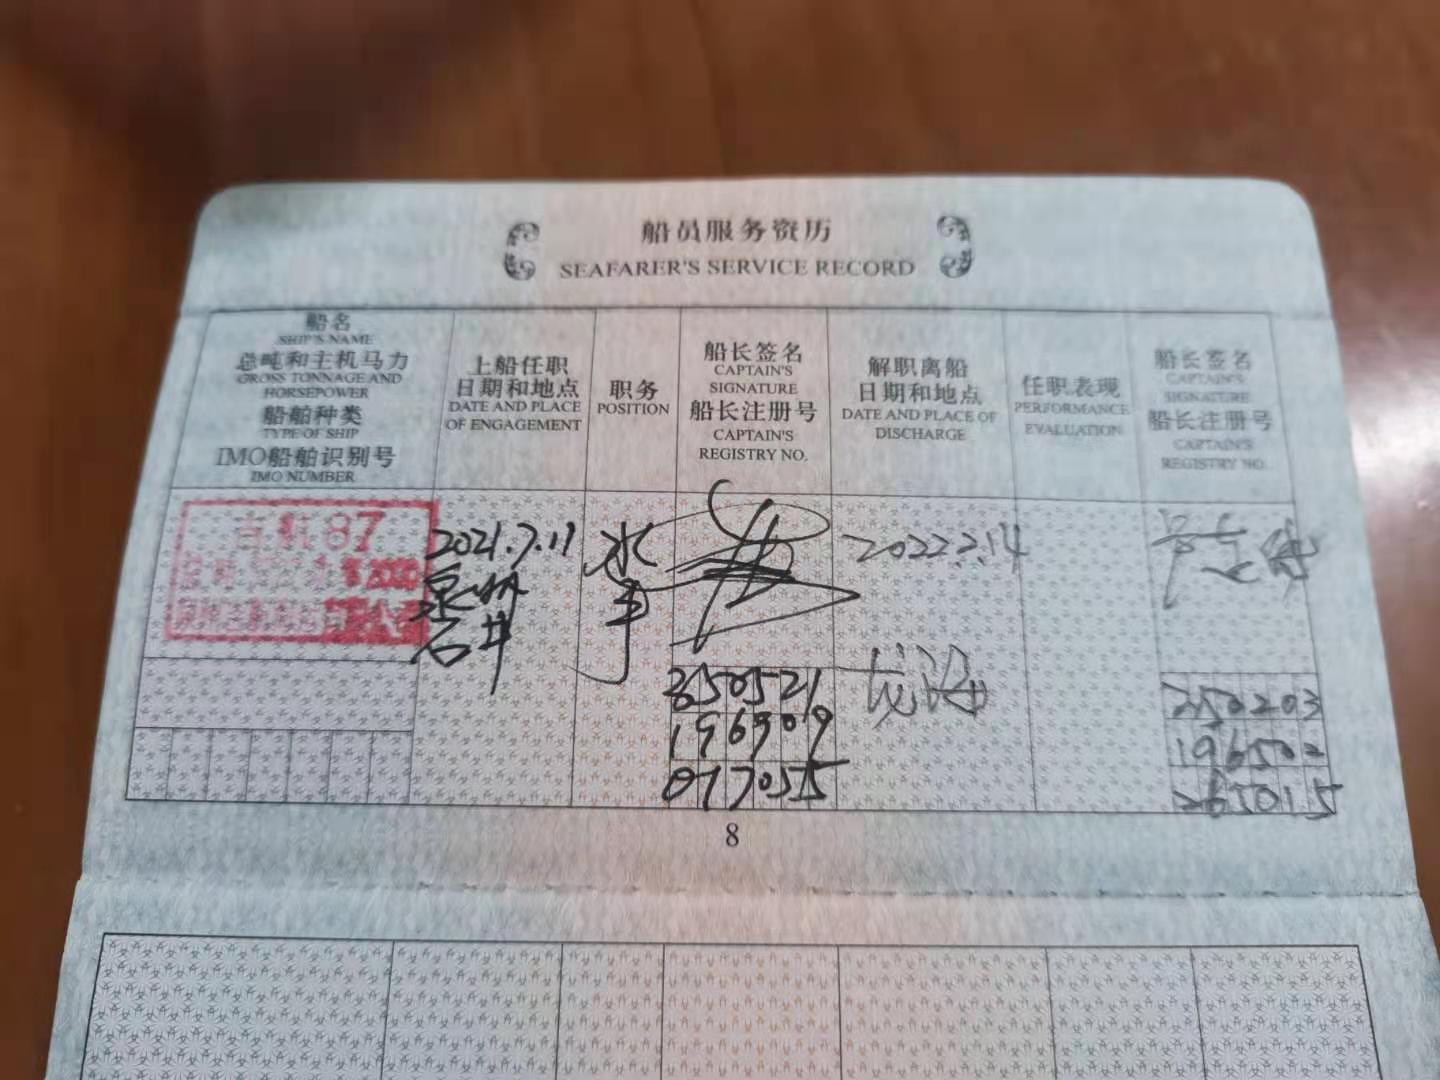 船员服务资历
SEAFARER'S SERVICE RECORD
船名
SHIP'S NAME
总吨和主机马力
GROSS TONNAGE AND
HORSEPOWER
船舶种类
TYPE OF SHIP
IMO船舶识别号
IMO NUMBER
上船任职
日期和地点
DATE AND PLACE
OF ENGAGEMENT
职务
POSITION
船长签名
CAPTAIN'S
SIGNATURE
船长注册号
CAPTAIN'S
REGISTRY NO.
解职离船
日期和地点
DATE AND PLACE OF
DISCHARGE
任职表现
PERFORMANCE
EVALUATION
船长签名
CAPTAIN'S
SIGNATURE
船长注册号
CAPTAIN'S
REGISTRY NO.
87
2021.7.11
泉州
石井
水
手
350521
196909
017055
2022.2.14
龙海
350203
196502
265015
8